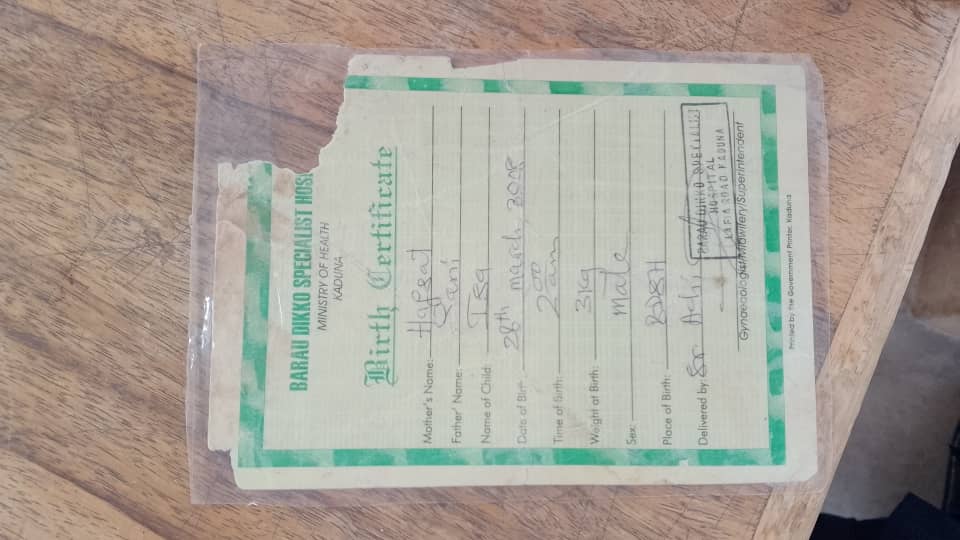 BARAU DIKKO SPECIALIST HOSP
MINISTRY OF HEALTH
KADUNA
Birth Certificate
Mother's Name: Hafsat
Father' Name: Sani
Name of Child: Isa
Date of Birth: 28th march, 2008
Time of Birth: 2 00 am
Weight at Birth: 3kg
Sex: male
Place of Birth: BDSH
Delivered by: Sr
BARAU DIKKO SPECIALIST
HOSPITAL
LAFIA ROAD KADUNA
Gynaecologist/Midwifery/Superintendent
Printed by the Government Printer, Kaduna